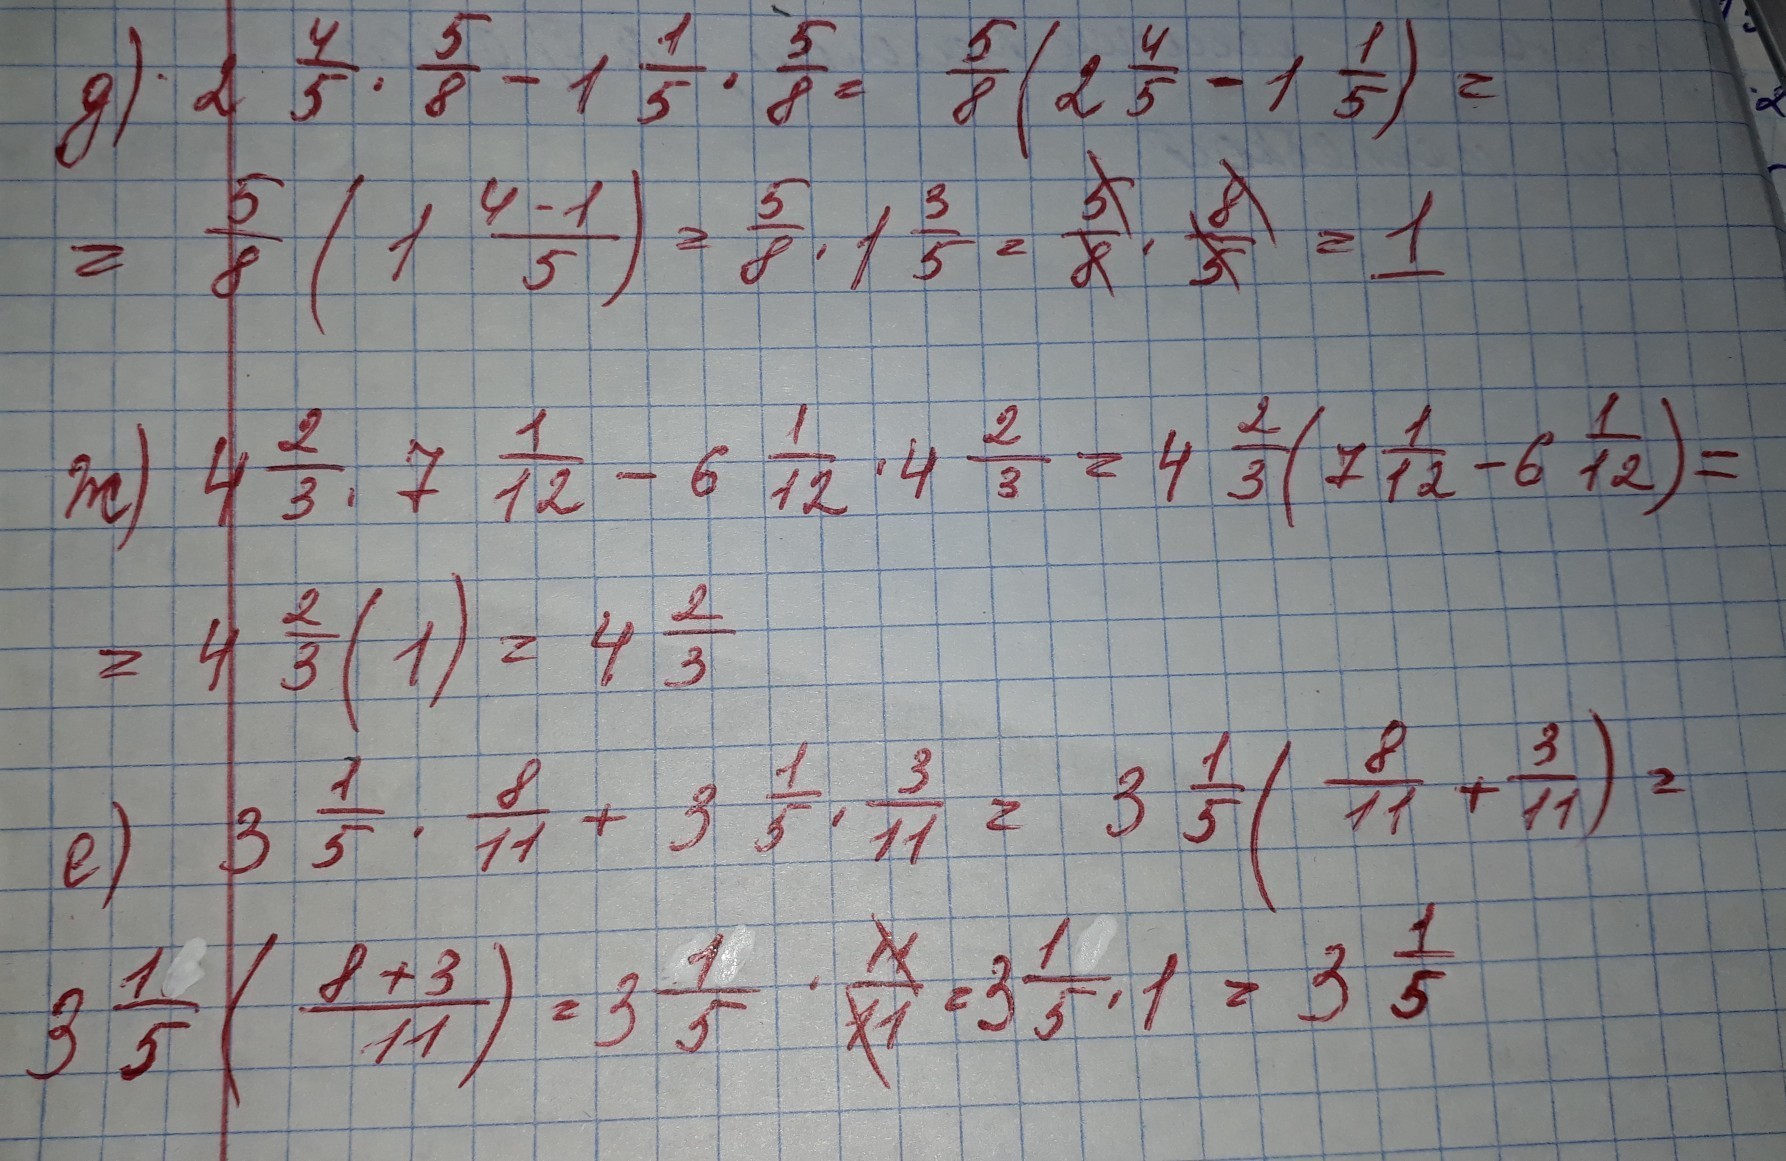 д) 2 4/5 · 5/8 - 1 1/5 · 5/8 = 5/8 (2 4/5 - 1 1/5) =
= 5/8 (1 4-1/5) = 5/8 · 1 3/5 = 5/8 · 8/5 = 1
ж) 4 2/3 · 7 1/12 - 6 1/12 · 4 2/3 = 4 2/3 (7 1/12 - 6 1/12) =
= 4 2/3 (1) = 4 2/3
е) 3 1/5 · 8/11 + 3 1/5 · 3/11 = 3 1/5 (8/11 + 3/11) =
3 1/5 (8+3/11) = 3 1/5 · 11/11 = 3 1/5 · 1 = 3 1/5